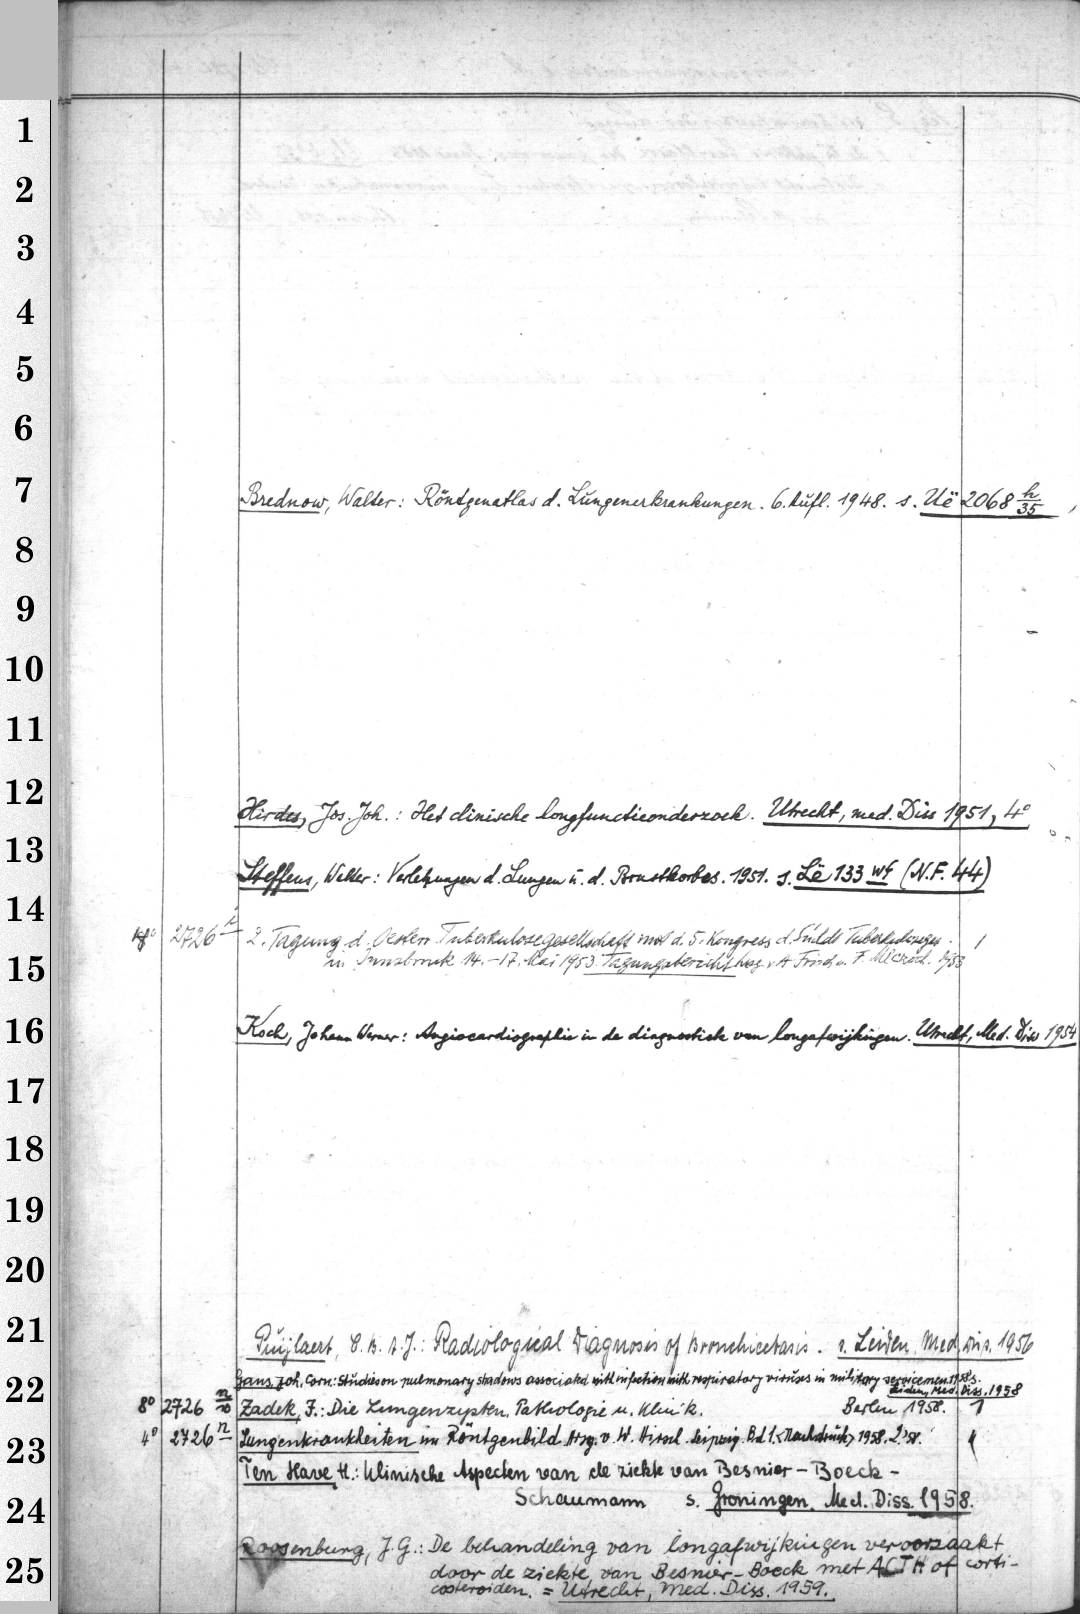 1
2
3
4
5
6
7
Brednow, Walter: Röntgenatlas d. Lungenerkrankungen. 6. Aufl. 1948. s. Uë 2068 h/35
8
9
10
11
12
Hirdes, Jos. Joh.: Het clinische longfunctieonderzoek. Utrecht, med. Diss 1951, 4°
13
Steffens, Walter: Verletzungen d. Lungen u. d. Brustkorbes. 1951. s. Lë 133 wf (N.F. 44)
14
2726 2. Tagung d. Oesterr. Tuberkulosegesellschaft mit d. 5. Kongress d. Südd. Tuberkuloseges. 1
15
in Innsbruck 14.-17. Mai 1953. Tagungsbericht hrsg. v. A. Frisch u. F. 1953
16
Koch, Johann Werner: Angiocardiographie in de diagnostiek van longafwijkingen. Utrecht, Med. Diss 1954
17
18
19
20
21
Puijlaert, C.B.A.J.: Radiological Diagnosis of Bronchicetasis. s. Leiden, Med. Diss. 1956
22
Gans, Joh. Corn: Studies on pulmonary shadows associated with infection with respiratory viruses in military servicemen. 1958. s.
Leiden, Med. Diss. 1958
8° 2726 n/10 Zadek, J.: Die Lungenzysten. Pathologie u. Klinik. Berlin 1958. 1
4° 2726 n Lungenkrankheiten im Röntgenbild. Hrsg. v. W. Hirsch. Leipzig. Bd 1. <Nachdruck> 1958. 2. '58.
23
Ten Have, H.: Klinische Aspecten van de ziekte van Besnier-Boeck-
Schaumann s. Groningen, Med. Diss. 1958.
24
Roosenburg, J.G.: De behandeling van longafwijkingen veroorzaakt
25
door de ziekte van Besnier-Boeck met ACTH of corti-
costeroiden. = Utrecht, Med. Diss. 1959.